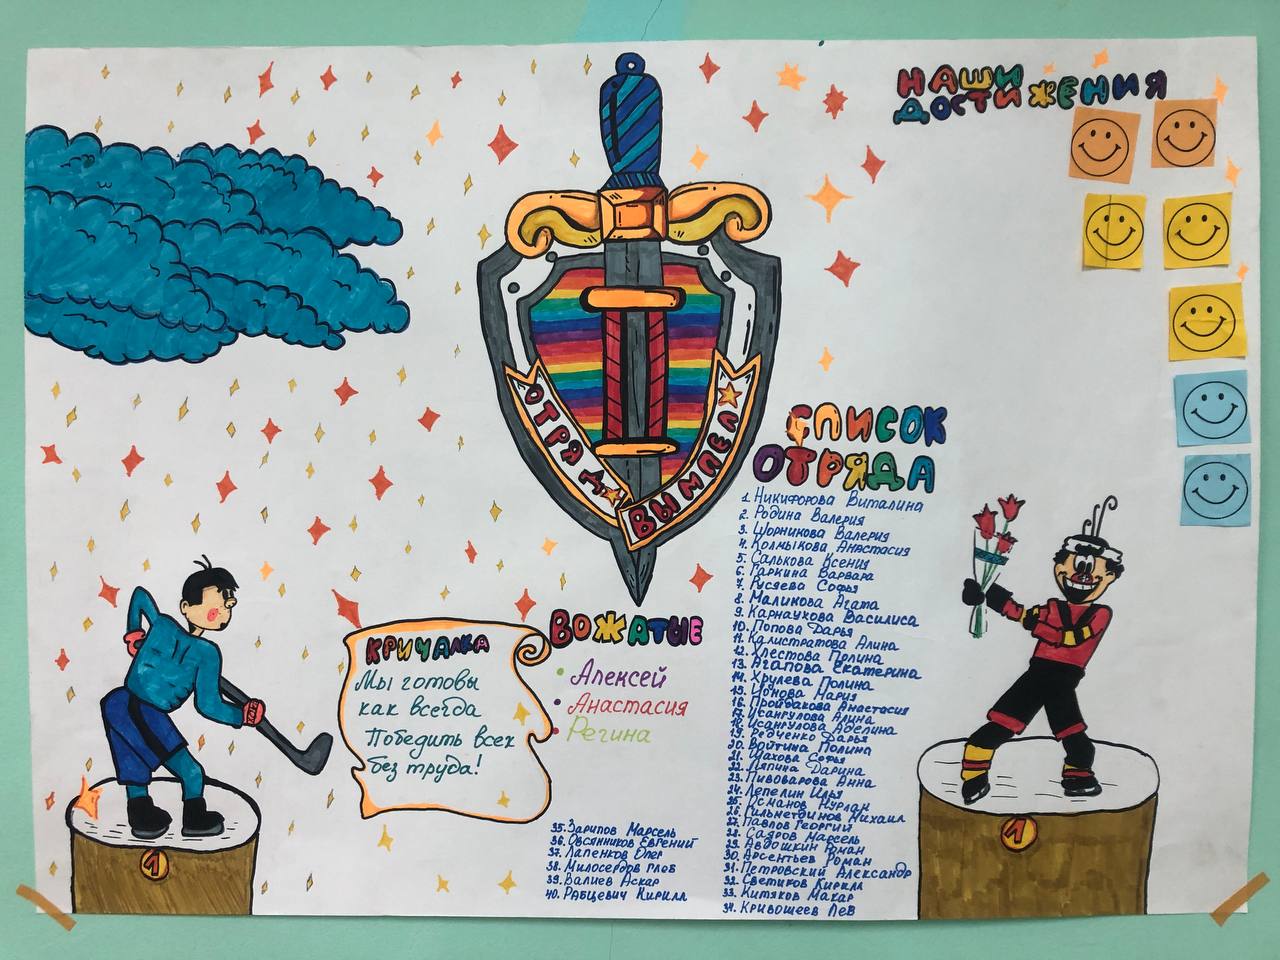 НАШИ
ДОСТИЖЕНИЯ
ОТРЯД
ВЫМПЕЛ
СПИСОК
ОТРЯДА
1. Никифорова Виталина
2. Родина Валерия
3. Шорникова Валерия
4. Колмыкова Анастасия
5. Салькова Ксения
6. Гаркина Варвара
7. Русяева Софья
8. Маликова Агата
9. Карнаухова Василиса
10. Попова Дарья
11. Калистратова Алина
12. Хлестова Полина
13. Агапова Екатерина
14. Хрулева Полина
15. Ионова Мария
16. Пройдакова Анастасия
17. Исангулова Алина
18. Исангулова Аделина
19. Редченко Дарья
20. Войтина Полина
21. Шахова Софья
22. Ляпина Дарина
23. Пивоварова Анна
24. Лепелин Илья
25. Османов Нурлан
26. Кильметдинов Михаил
27. Павлов Георгий
28. Садров Марсель
29. Авдошкин Роман
30. Арсентьев Роман
31. Петровский Александр
32. Светиков Кирилл
33. Китяков Макар
34. Кривошеев Лев
35. Зарипов Марсель
36. Овсянников Евгений
37. Лапенков Олег
38. Милосердов Глеб
39. Валиев Аскар
40. Рабцевич Кирилл
ВОЖАТЫЕ
• Алексей
• Анастасия
• Регина
КРИЧАЛКА
Мы готовы
как всегда
Победить всех
без труда!
1
1